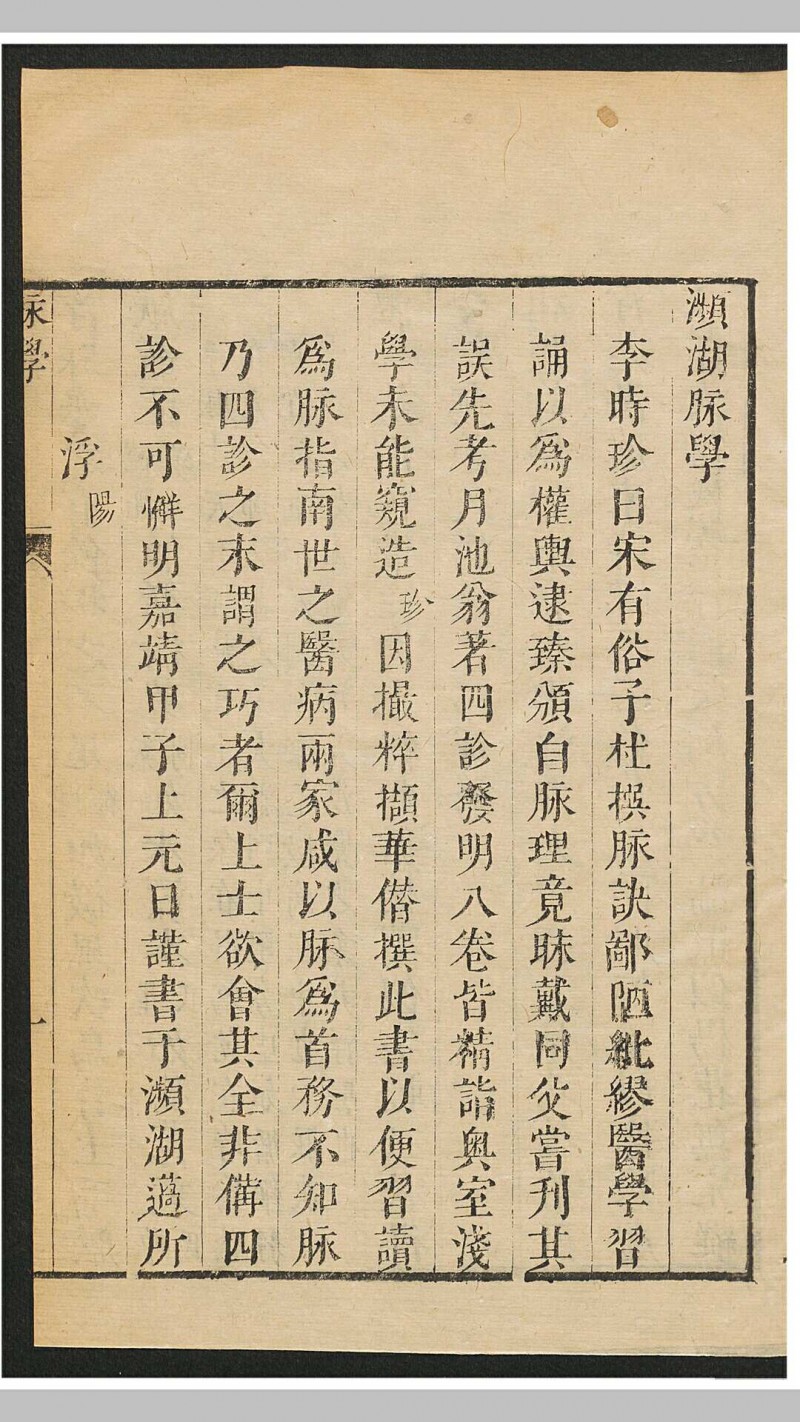 瀕湖脉學
李時珍曰宋有俗子杜撰脉訣鄙陋紕繆醫學習
誦以為權輿逮臻頒白脉理竟昧戴同父嘗刋其
誤先考月池翁著四診發明八卷皆精詣奧室淺
學未能窺造珍因撮粹擷華僣撰此書以便習讀
為脉指南世之醫病兩家咸以脉為首務不知脉
乃四診之末謂之巧者爾上士欲會其全非備四
診不可明嘉靖甲子上元日謹書于瀕湖薖所
浮陽
脉學
一